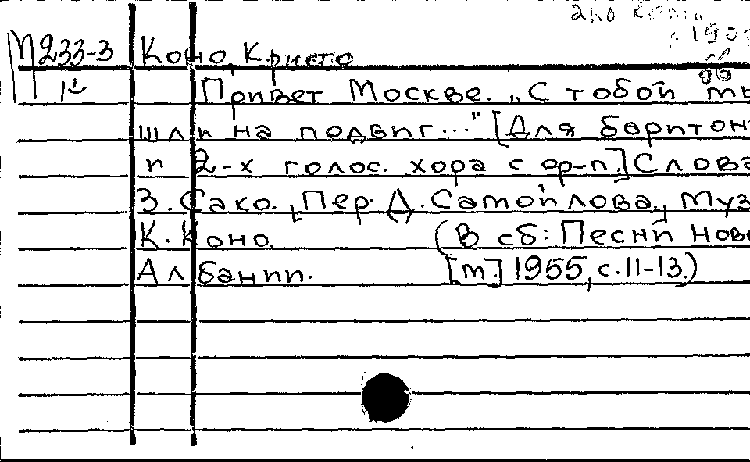 М233-3 Коно, Кристо
Привет Москве. „С тобой мы
шли на подвиг..." [Для баритон
и 2-х голос. хора с ф-п.] Слова
З. Сако. Пер. Д. Самойлова. Муз
К. Коно. (В сб: Песни Ново
Албании. [М.] 1955, с. 11-13.)